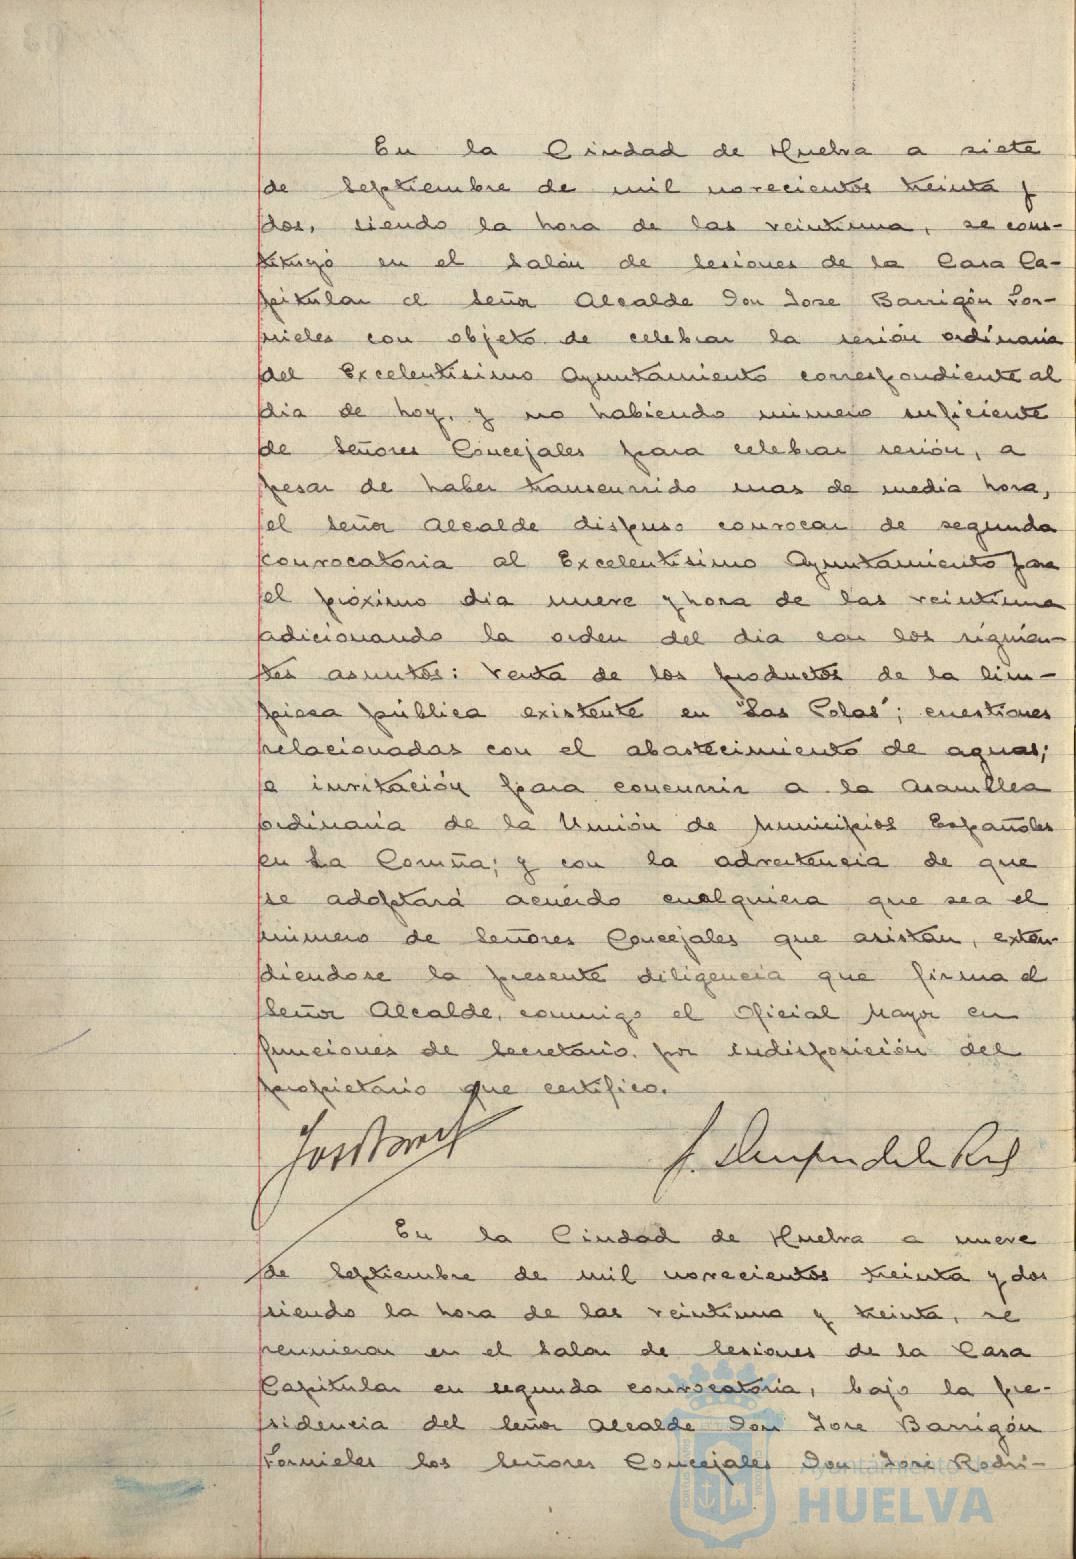 En la Ciudad de Huelva a siete
de Septiembre de mil novecientos treinta y
dos, siendo la hora de las veintiuna, se cons-
tituyó en el Salón de Sesiones de la Casa Ca-
pitular el Señor Alcalde Don Jose Barrigón For-
nieles con objeto de celebrar la sesión ordinaria
del Excelentísimo Ayuntamiento correspondiente al
dia de hoy, y no habiendo número suficiente
de Señores Concejales para celebrar sesión, a
pesar de haber transcurrido mas de media hora,
el Señor Alcalde dispuso convocar de segunda
convocatoria al Excelentisimo Ayuntamiento para
el próximo dia nueve y hora de las veintiuna
adicionando la orden del dia con los siguien-
tes asuntos: Venta de los productos de la lim-
pieza pública existente en "Las Colas"; cuestiones
relacionadas con el abastecimiento de aguas;
e invitación para concurrir a la Asamblea
ordinaria de la Unión de Municipios Españoles
en La Coruña; y con la advertencia de que
se adoptará acuerdo cualquiera que sea el
número de Señores Concejales que asistan, exten-
diéndose la presente diligencia que firma el
Señor Alcalde, conmigo el Oficial Mayor en
funciones de Secretario por indisposición del
propietario que certifico.
En la Ciudad de Huelva a nueve
de Septiembre de mil novecientos treinta y dos
siendo la hora de las veintiuna y treinta, se
reunieron en el Salon de Sesiones de la Casa
Capitular en segunda convocatoria, bajo la pre-
sidencia del Señor Alcalde Don Jose Barrigón
Fornieles los Señores Concejales Don José Rodrí-
Ayuntamiento de
HUELVA